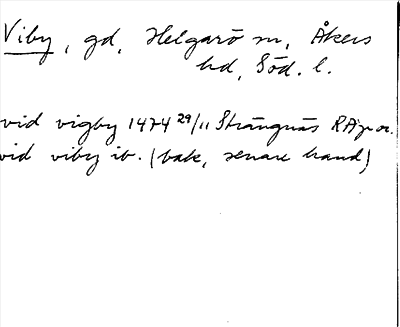 Viby, gd, Helgarö sn, Åkers
hd, Söd. l.
vid vigby 1474 29/11 Strängnäs RAp or.
vid viby ib. (bak, senare hand)